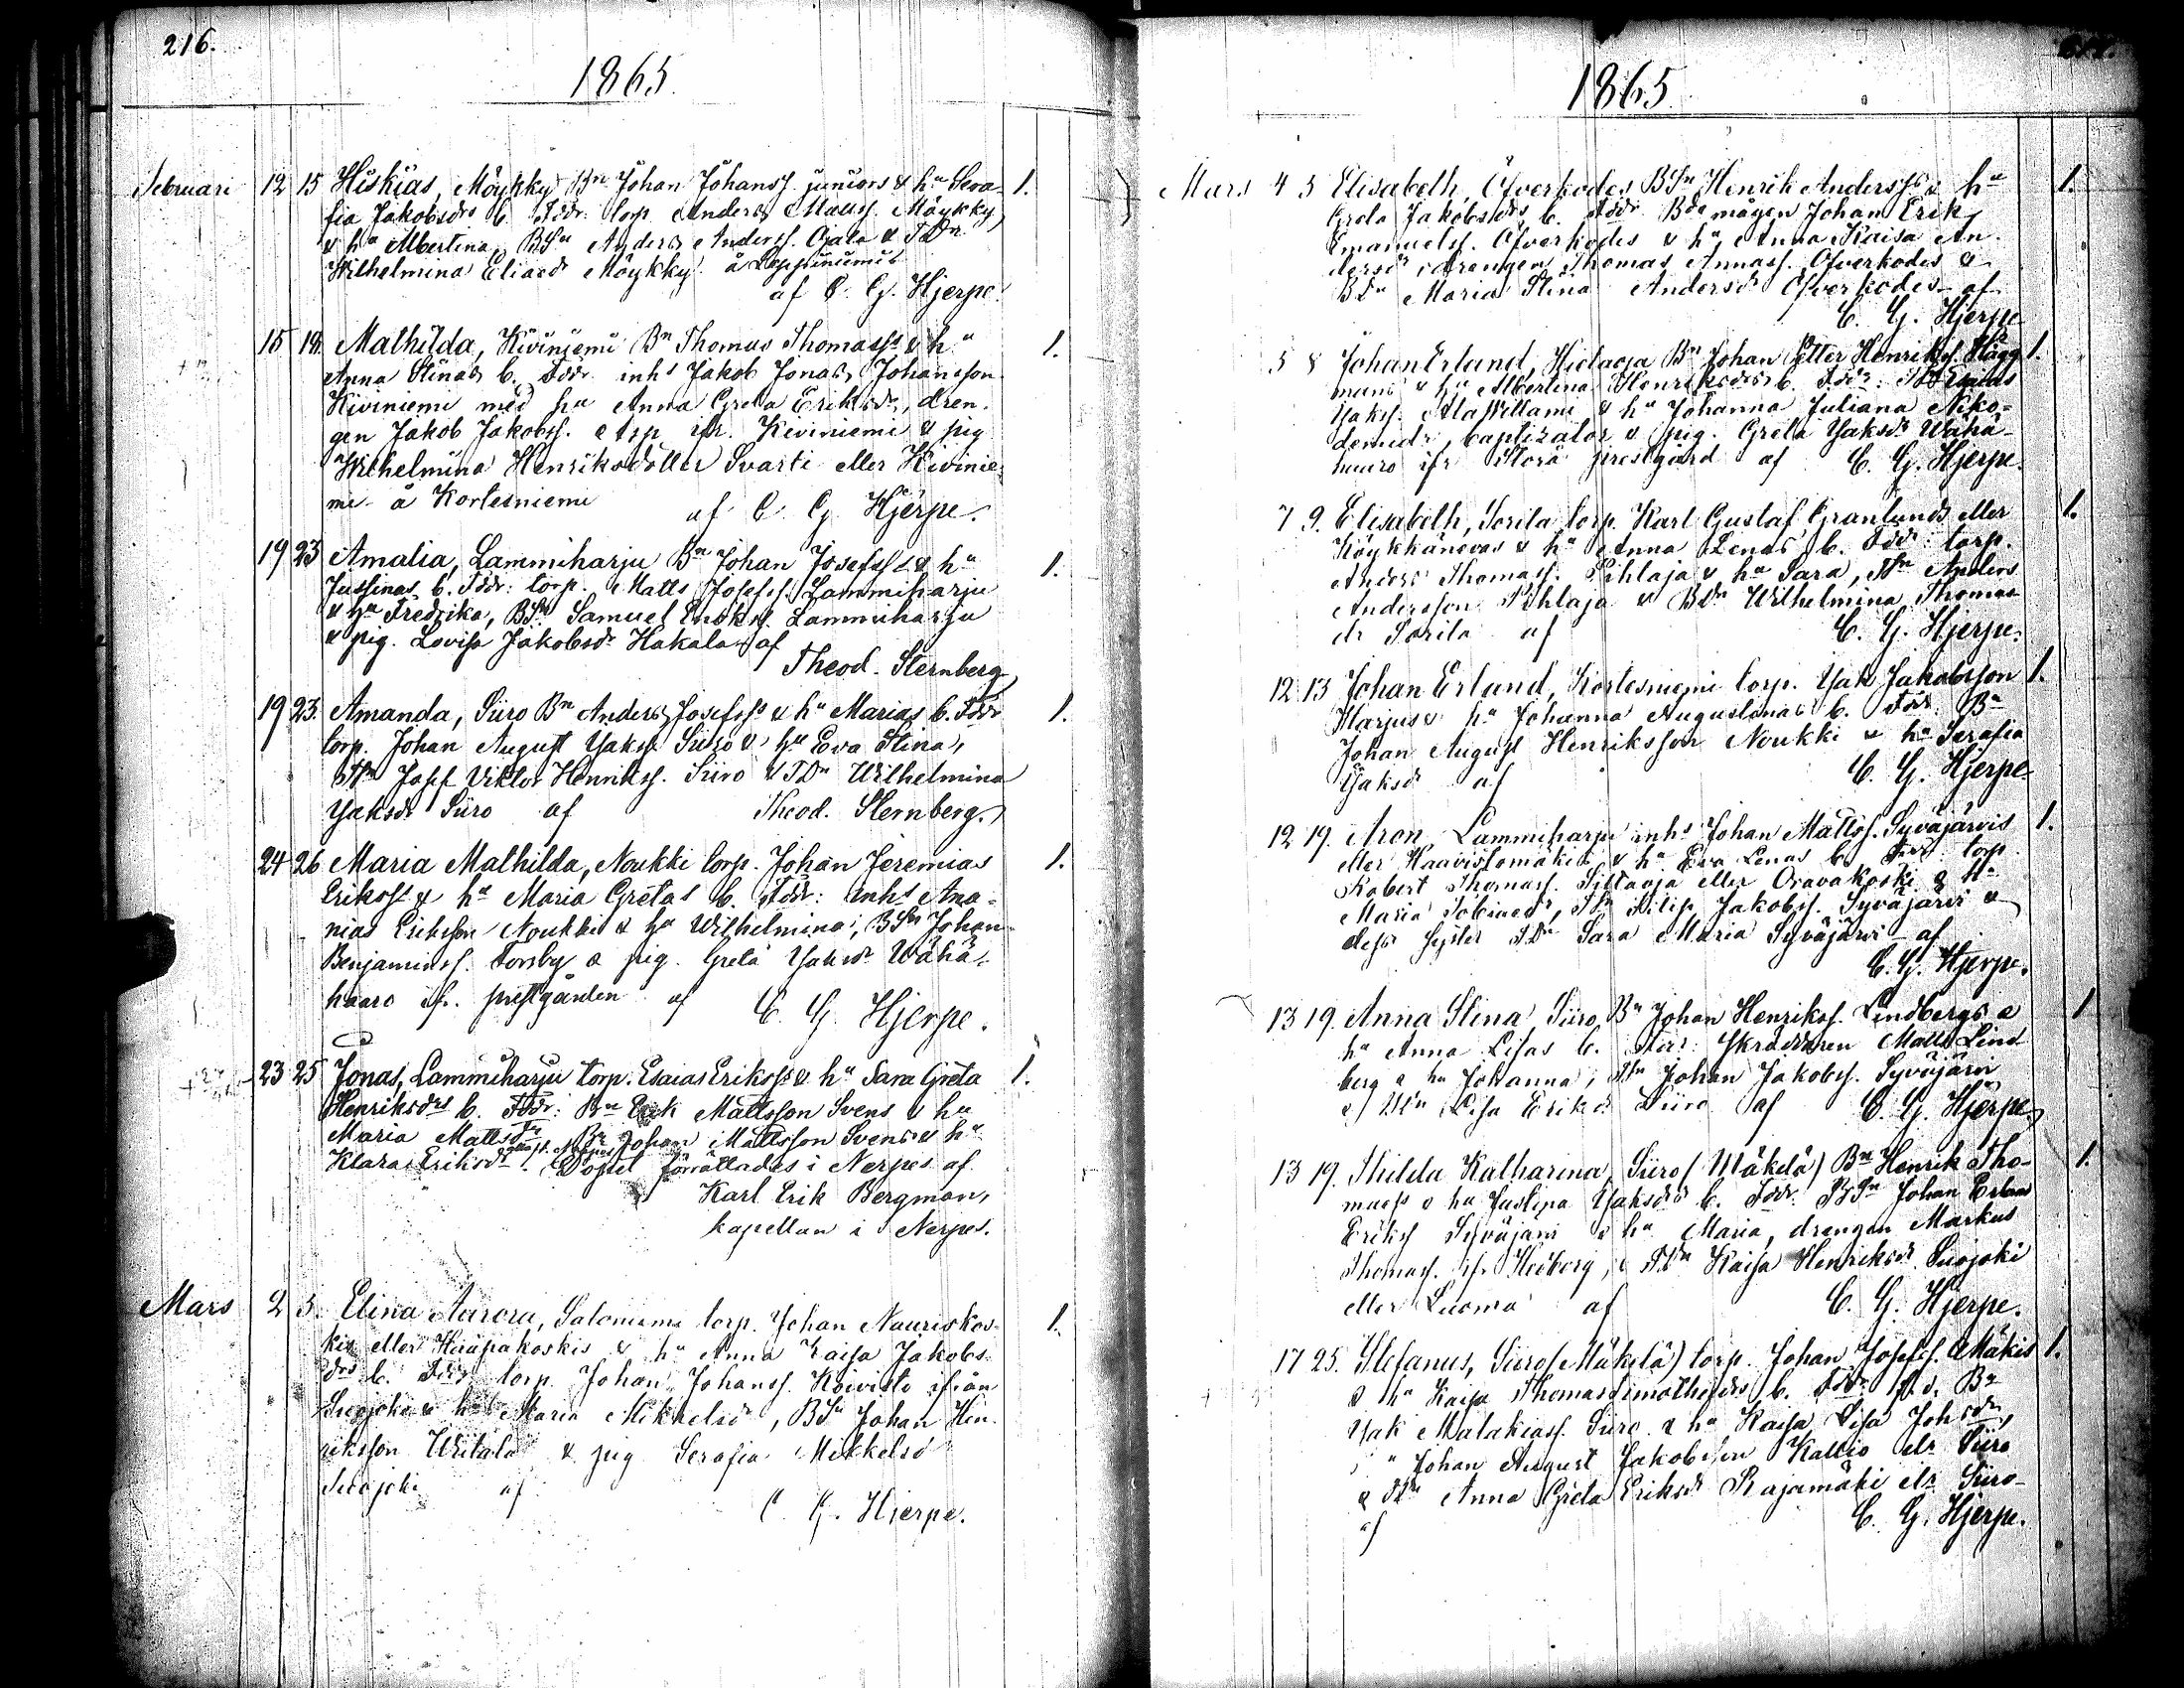 216.
1865.
Februari 12 15 Hiskias, Möykky Bn Johan Johanss. juniors & hu Sera- 1.
fia Jakobsdrs b. Fddr: torp Anders Matts. Möykky,
& hu Albertina, BSn Anders Anderss. Ojala & TDn
Wilhelmina Eliaedr Möykky å Leppiniemi
af C. G. Hjerpe.
15 18. Mathilda, Kiviniemi Bn Thomas Thomass & hu 1.
Anna Stinas b. Fddr inhs Jakob Jonas Johansson
Kiviniemi med hu Anna Greta Eriksdr, dren-
gen Jakob Jakobss. ifr. Kiviniemi & pig
Wilhelmina Henriksdotter Svarti eller Kivinie-
mi å Kortesniemi
af C. G. Hjerpe.
19 23 Amalia, Lammiharju Bn Johan Josefss & hu 1.
Jussinas b. Fddr: torp. Matts Josefss. Lammiharju
& hu Fredrika, BSn Samuel Enoks. Lammiharju
& pig. Lovisa Jakobsdr Hakala af
Theod. Sternberg
19 23. Amanda, Siiro Bn Anders Josefss & hu Marias b. Fddr 1.
torp. Johan August Yakss Siiro & hu Eva Stina,
Josef Viktor Henrikss. Siiro & TDn Wilhelmina
Yaksdr Siiro af Theod. Sternberg.
24 26 Maria Mathilda, Noukki torp. Johan Jeremias 1.
Erikss & hu Maria Gretas b. Fddr: inhs Ana-
nias Eriksson Noukki & hu Wilhelmina, BSn Johan
Benjaminss. Forsby & pig. Greta Yaksdr Wähä-
haaro ifr. prestgården af C. G. Hjerpe.
23 25 Jonas, Lammiharju torp. Esaias Erikss & hu Sara Greta 1.
Henriksdrs b. Fddr: Bn Erik Mattsson Svens & hu
Maria Mattsdr Bn Johan Mattsson Svens & hu
Klara Eriksdr. Dopet förrättades i Nerpes af
Karl Erik Bergman,
kapellan i Nerpes.
Mars 2 5. Elina Aurora, Saloniemi torp. Johan Nauriskos- 1.
kis eller Hiiripakoskis & hu Anna Kaisa Jakobs-
drs b. Fddr torp. Johan Johanss. Koivisto ifrån
Suojoki & hu Maria Mikkelsdr, BSn Johan Hen-
riksson Witala & pig Serafia Mikkelsdr
Suojoki af
C. G. Hjerpe.
1865.
Mars 4 5 Elisabeth, Öfverkodes BSn Henrik Anderss & hu 1.
Greta Jakobsdrs b. Fddr Bde mågen Johan Erik
Emanuelss. Öfverkodes & hu Anna Kaisa An-
dersdr, drengen Thomas Annass. Öfverkodes &
BDn Maria Stina Andersdr Öfverkodes af
C. G. Hjerpe
5 8 Johan Erland, Hietaoja Bn Johan Petter Henrikss. Hägg- 1.
mans & hu Albertina Henriksdrs b. Fddr: Esaias
Yakss. Ala & hu Johanna Juliana Niko-
demidr, baptizator & pig. Greta Yaksdr Wähä-
haaro ifr Stora prestgård af C. G. Hjerpe.
7 9. Elisabeth, Sorila torp. Karl Gustaf Granlunds eller 1.
Köykkänevas & hu Anna Lenas b. Fddr: torp.
Anders Thomass. Pihlaja & hu Sara, Anders
Andersson Pihlaja & BDn Wilhelmina Thomas-
dr Sorila af C. G. Hjerpe.
12 13 Johan Erland, Kortesniemi torp. Yak Jakobsson 1.
Harjus & hu Johanna Augustinas b. Fddr: Bn
Johan August Henriksson Noukki & hu Serafia
Yaksdr af C. G. Hjerpe
12 19. Aron Lammiharju inhs Johan Mattss. Syväjärvis 1.
eller Haavistomäkis & hu Eva Lenas b. Fddr: torp
Robert Thomass. Siltaoja eller Oravakoski & hu
Maria Tobiaedr, Filip Jakobss. Syväjärvi &
dess syster TDn Sara Maria Syväjärvi af
C. G. Hjerpe.
13 19. Anna Stina, Siiro Bn Johan Henrikss. Lindbergs & 1
hu Anna Lisas b. Fddr: skräddaren Matts Lind-
berg & hu Johanna, Johan Jakobss. Syväjärvi
& Lisa Eriksdr Siiro af C. G. Hjerpe
13 19. Thilda Katharina, Siiro (Mäkelä) Bn Henrik Tho- 1.
mass & hu Justina Yaksdrs b. Fddr. Johan Erland
Erikss Syväjärvi & hu Maria, drengen Markus
Thomass. ifr Heiborg, & TDn Kaisa Henriksdr Suojoki
eller Luoma af C. G. Hjerpe.
17 25. Stefanus, Siiro (Mäkelä) torp. Johan Josefss. Mäkis 1.
& hu Kaisa Thomas b. Fddr: Bn
Yak Malakiass. Siiro & hu Kaisa Lisa Johsdr,
" Johan August Jakobsson Kallio elr Siiro
& Anna Greta Eriksdr Rajamäki elr Siiro
af C. G. Hjerpe.